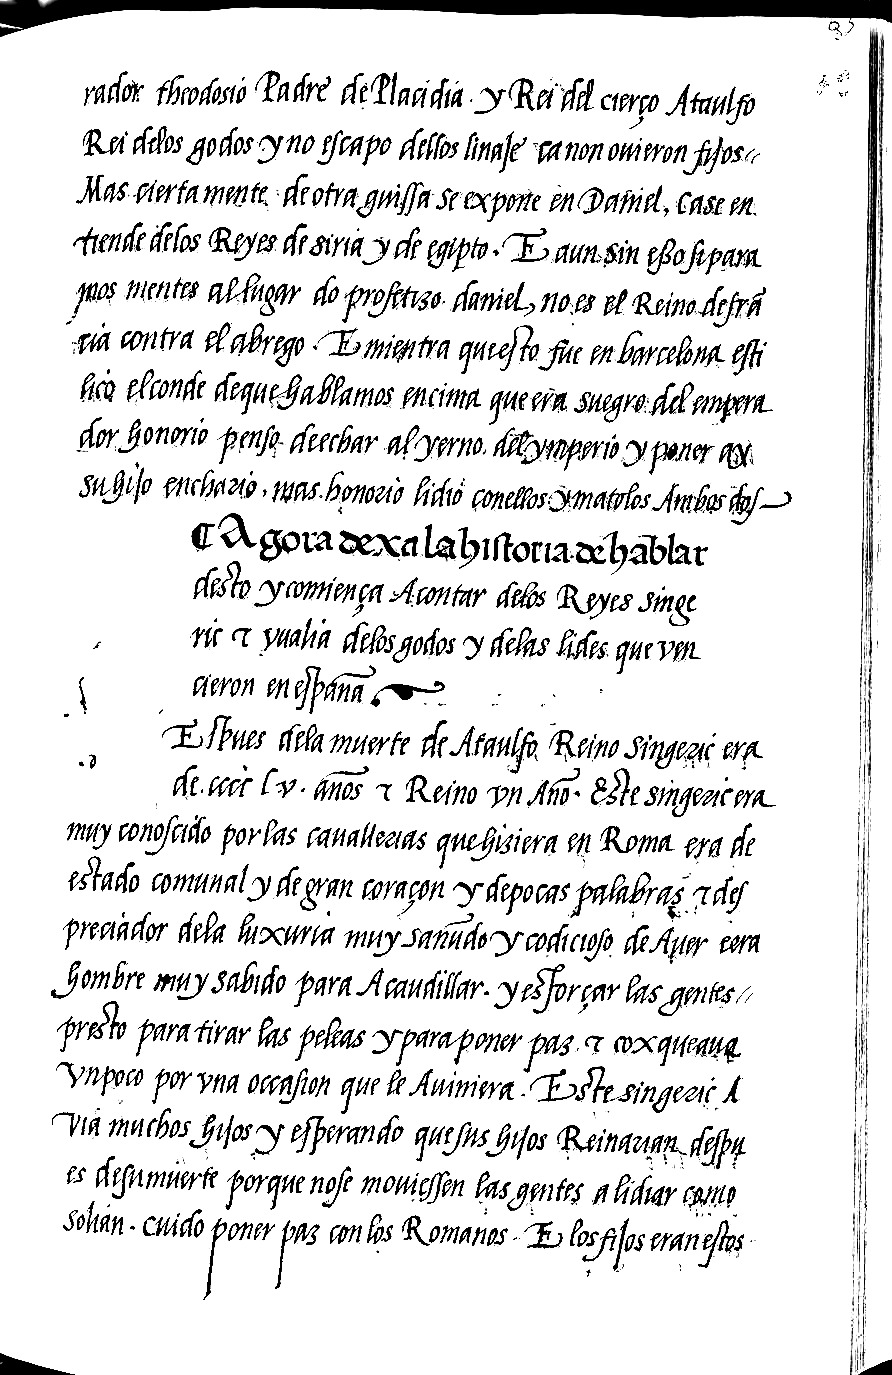 rador theodosio Padre de Placidia · y Rei del cierço Ataulfo
Rei delos godos y no escapo dellos linaje ca non ovieron fijos //
Mas ciertamente de otra guissa se expone en Daniel, Case en
tiende delos Reyes de siria y de egipto · E aun sin esso si para
mos mentes al lugar do profetizo daniel, no es el Reino de frã
cia contra el abrego · E mientra questo fue en barcelona esti
lico el conde de que hablamos encima que era suegro del empera
dor honorio penso de echar al yerno del ymperio y poner ay
su hijo enchario, mas honorio lidio conellos y matolos Ambos dos
¶ Agora dexa la historia de hablar
desto y comiença Acontar delos Reyes singe
ric ⁊ vualia delos godos y delas lides que ven
cieron en españa
Espues dela muerte de Ataulfo Reino singeric era
de cccc lv · años ⁊ Reino vn Año · Este singeric era
muy conoscido por las cavallerias que hiziera en Roma era de
estado comunal y de gran coraçon y de pocas palabras ⁊ des
preciador dela luxuria muy sañudo y codicioso de Aver era
hombre muy sabido para Acaudillar · y esforçar las gentes //
presto para tirar las peleas y para poner paz ⁊ coxqueava
vn poco por vna occasion que le Aviniera · Este singeric A
via muchos hijos y esperando que sus hijos Reinarian despu
es de su muerte porque no se moviessen las gentes a lidiar como
solian · cuido poner paz con los Romanos · E los fijos eran estos